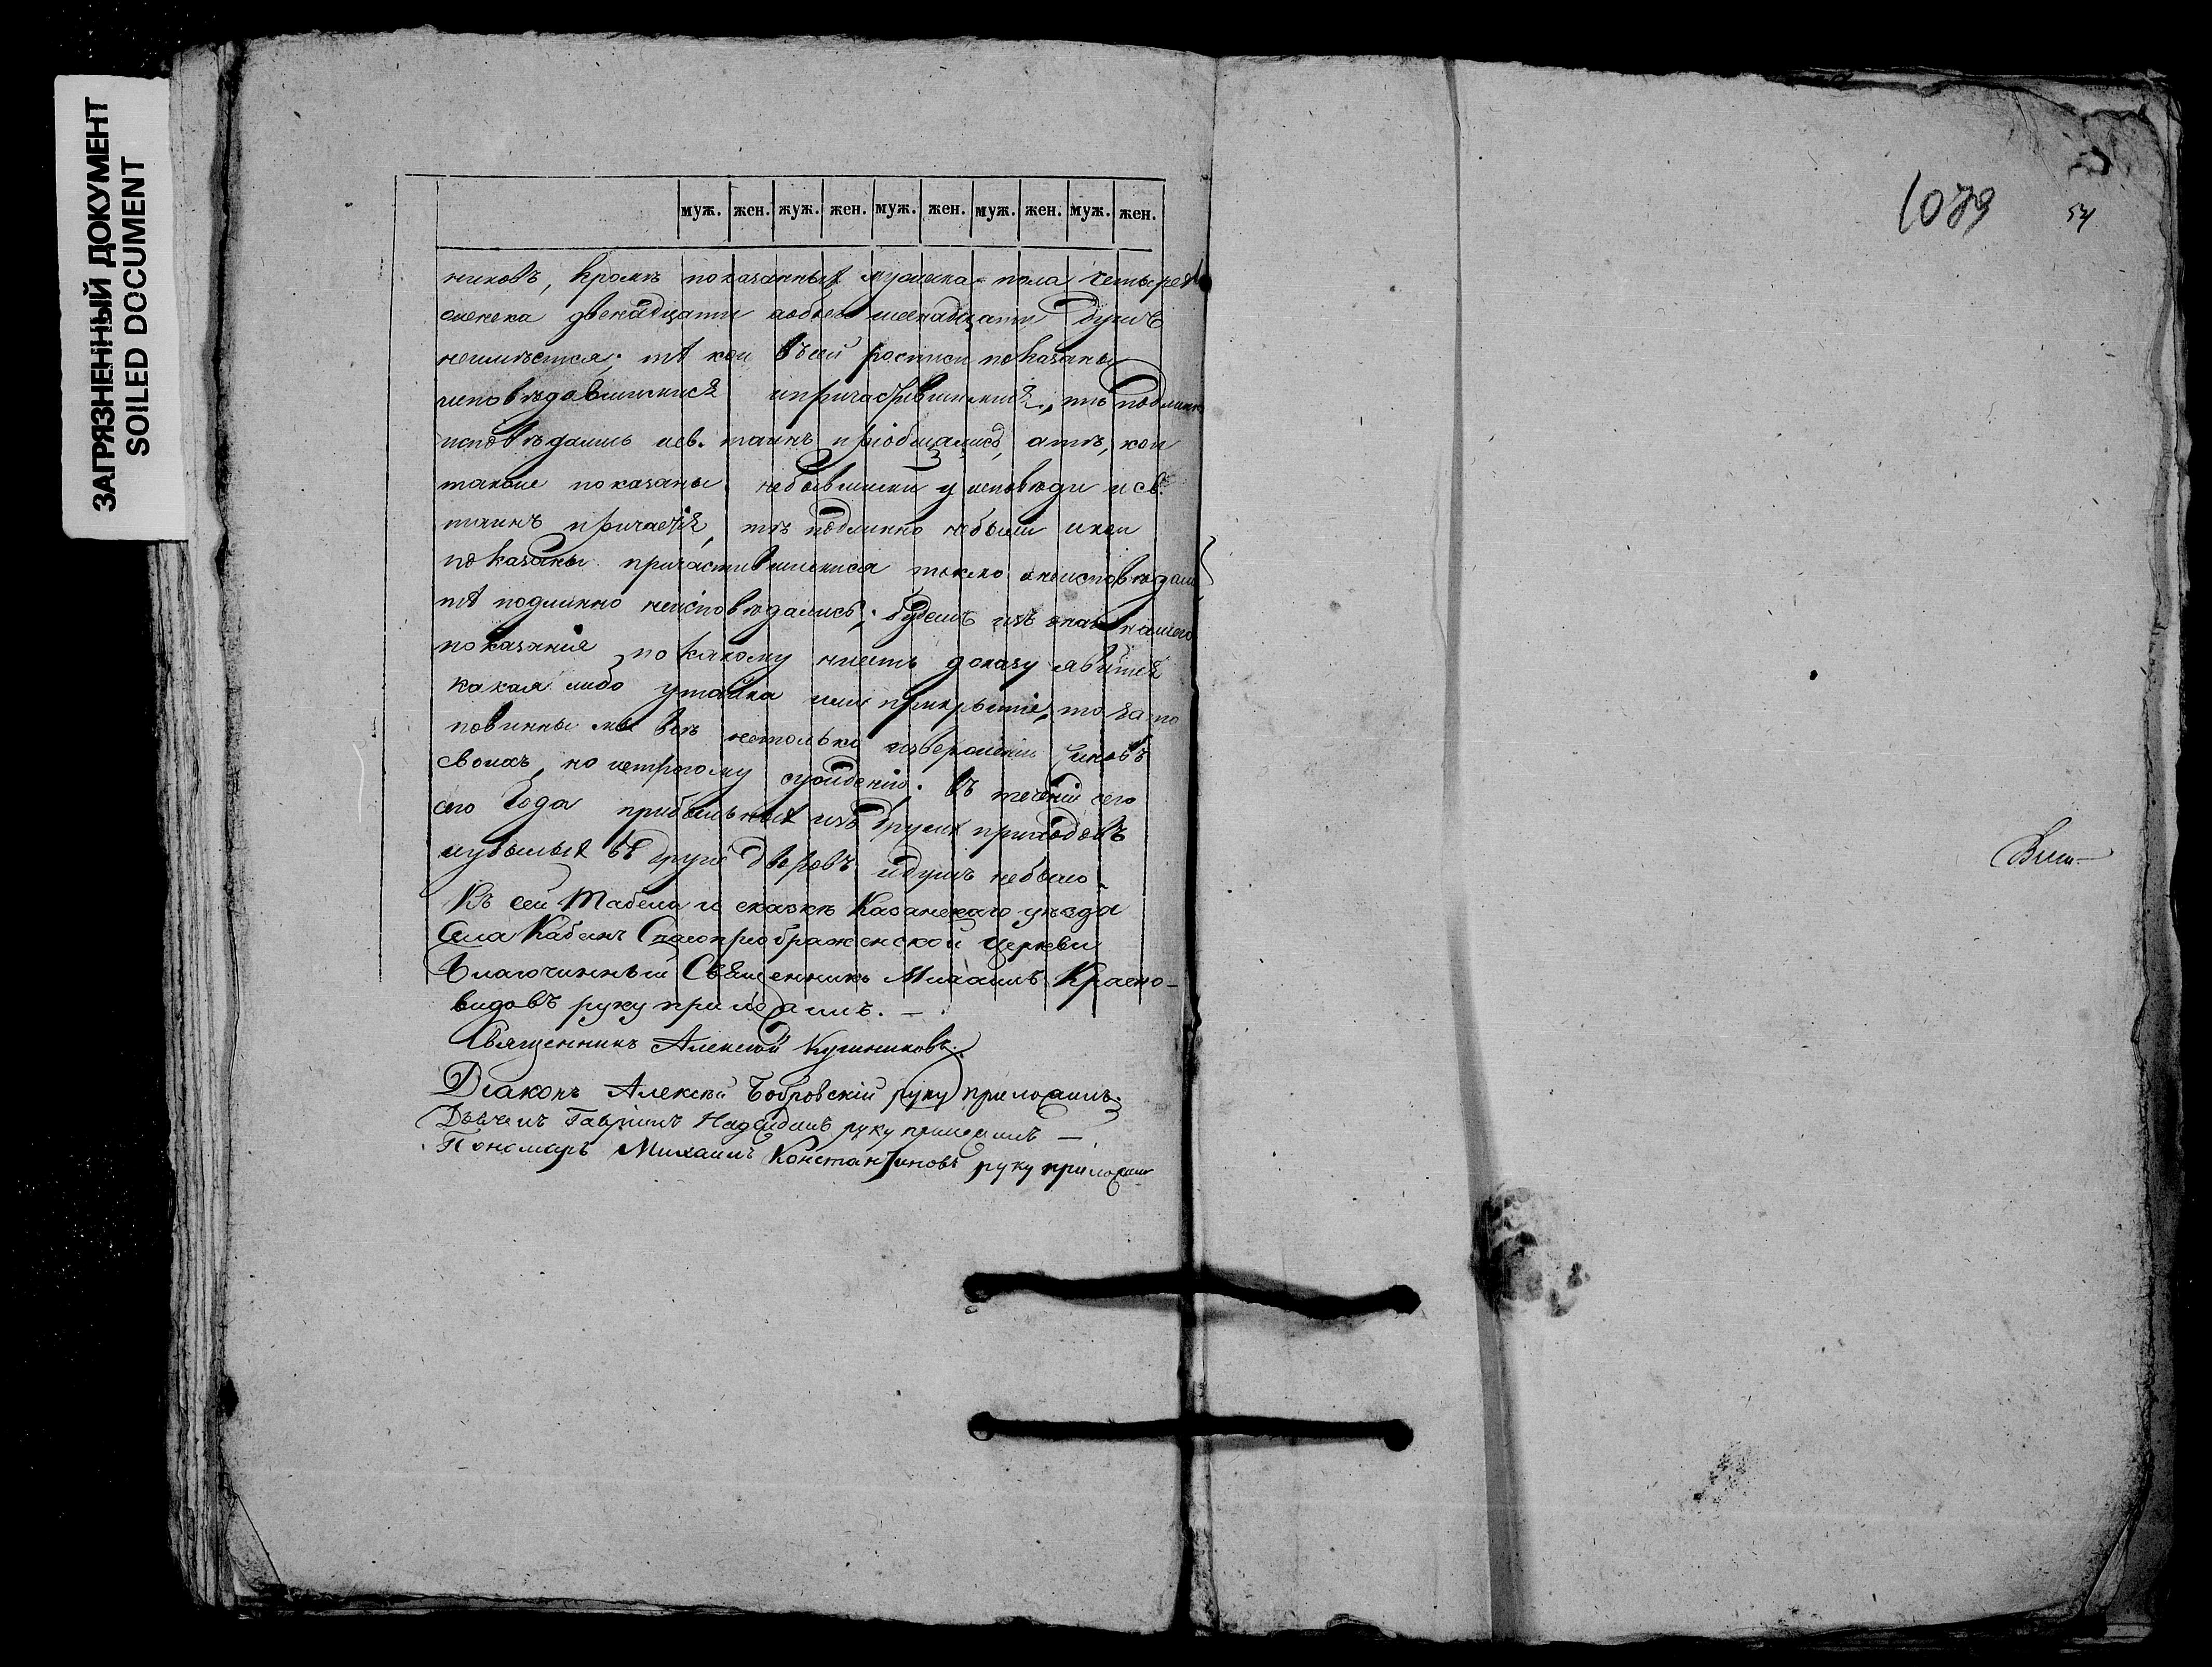 ЗАГРЯЗНЕННЫЙ ДОКУМЕНТ
SOILED DOCUMENT
муж. жен. жуж. жен. муж. жен. муж. жен. муж. жен.
никовъ, кромѣ показанныхъ мужеска пола четырехъ
женска двенадцати аобоего шеснадцати душъ
неимѣется; тѣ кои въсей росписи показаны
исповѣдавшимися ипричастившимися, тѣ подлинно
исповѣдались исв. таинъ пріобщались, атѣ, кои
также показаны небывшими у исповѣди исв.
таинъ причастія, тѣ подлинно небыли икои
показаны причастившимися токмо анеисповѣдали
тѣ подлинно неисповѣдались; будежъ изъ нашего
показанія покакому нинесть доказу явится
какая либо утайка или прикрытіе, то зато
повинны мы все нетолько изверженію чиновъ
своихъ, но истрогому сужденію. Въ теченіи сего
сего года прибылыхъ изъ другихъ приходовъ
иубылыхъ въ другіе дворовъ идушъ небыло
Къ сей Табели и сказкѣ Казанскаго уѣзда
Села Кабанъ Спасопреображенской церкви
Благочинный Священникъ Михаилъ Красно-
видовъ руку приложилъ. —
Священникъ Алексѣй
Діаконъ Алексѣй Бобровскій руку приложилъ
Дьячекъ Гавріилъ руку приложилъ —
Пономарь Михаилъ Константиновъ руку приложилъ
1079
54